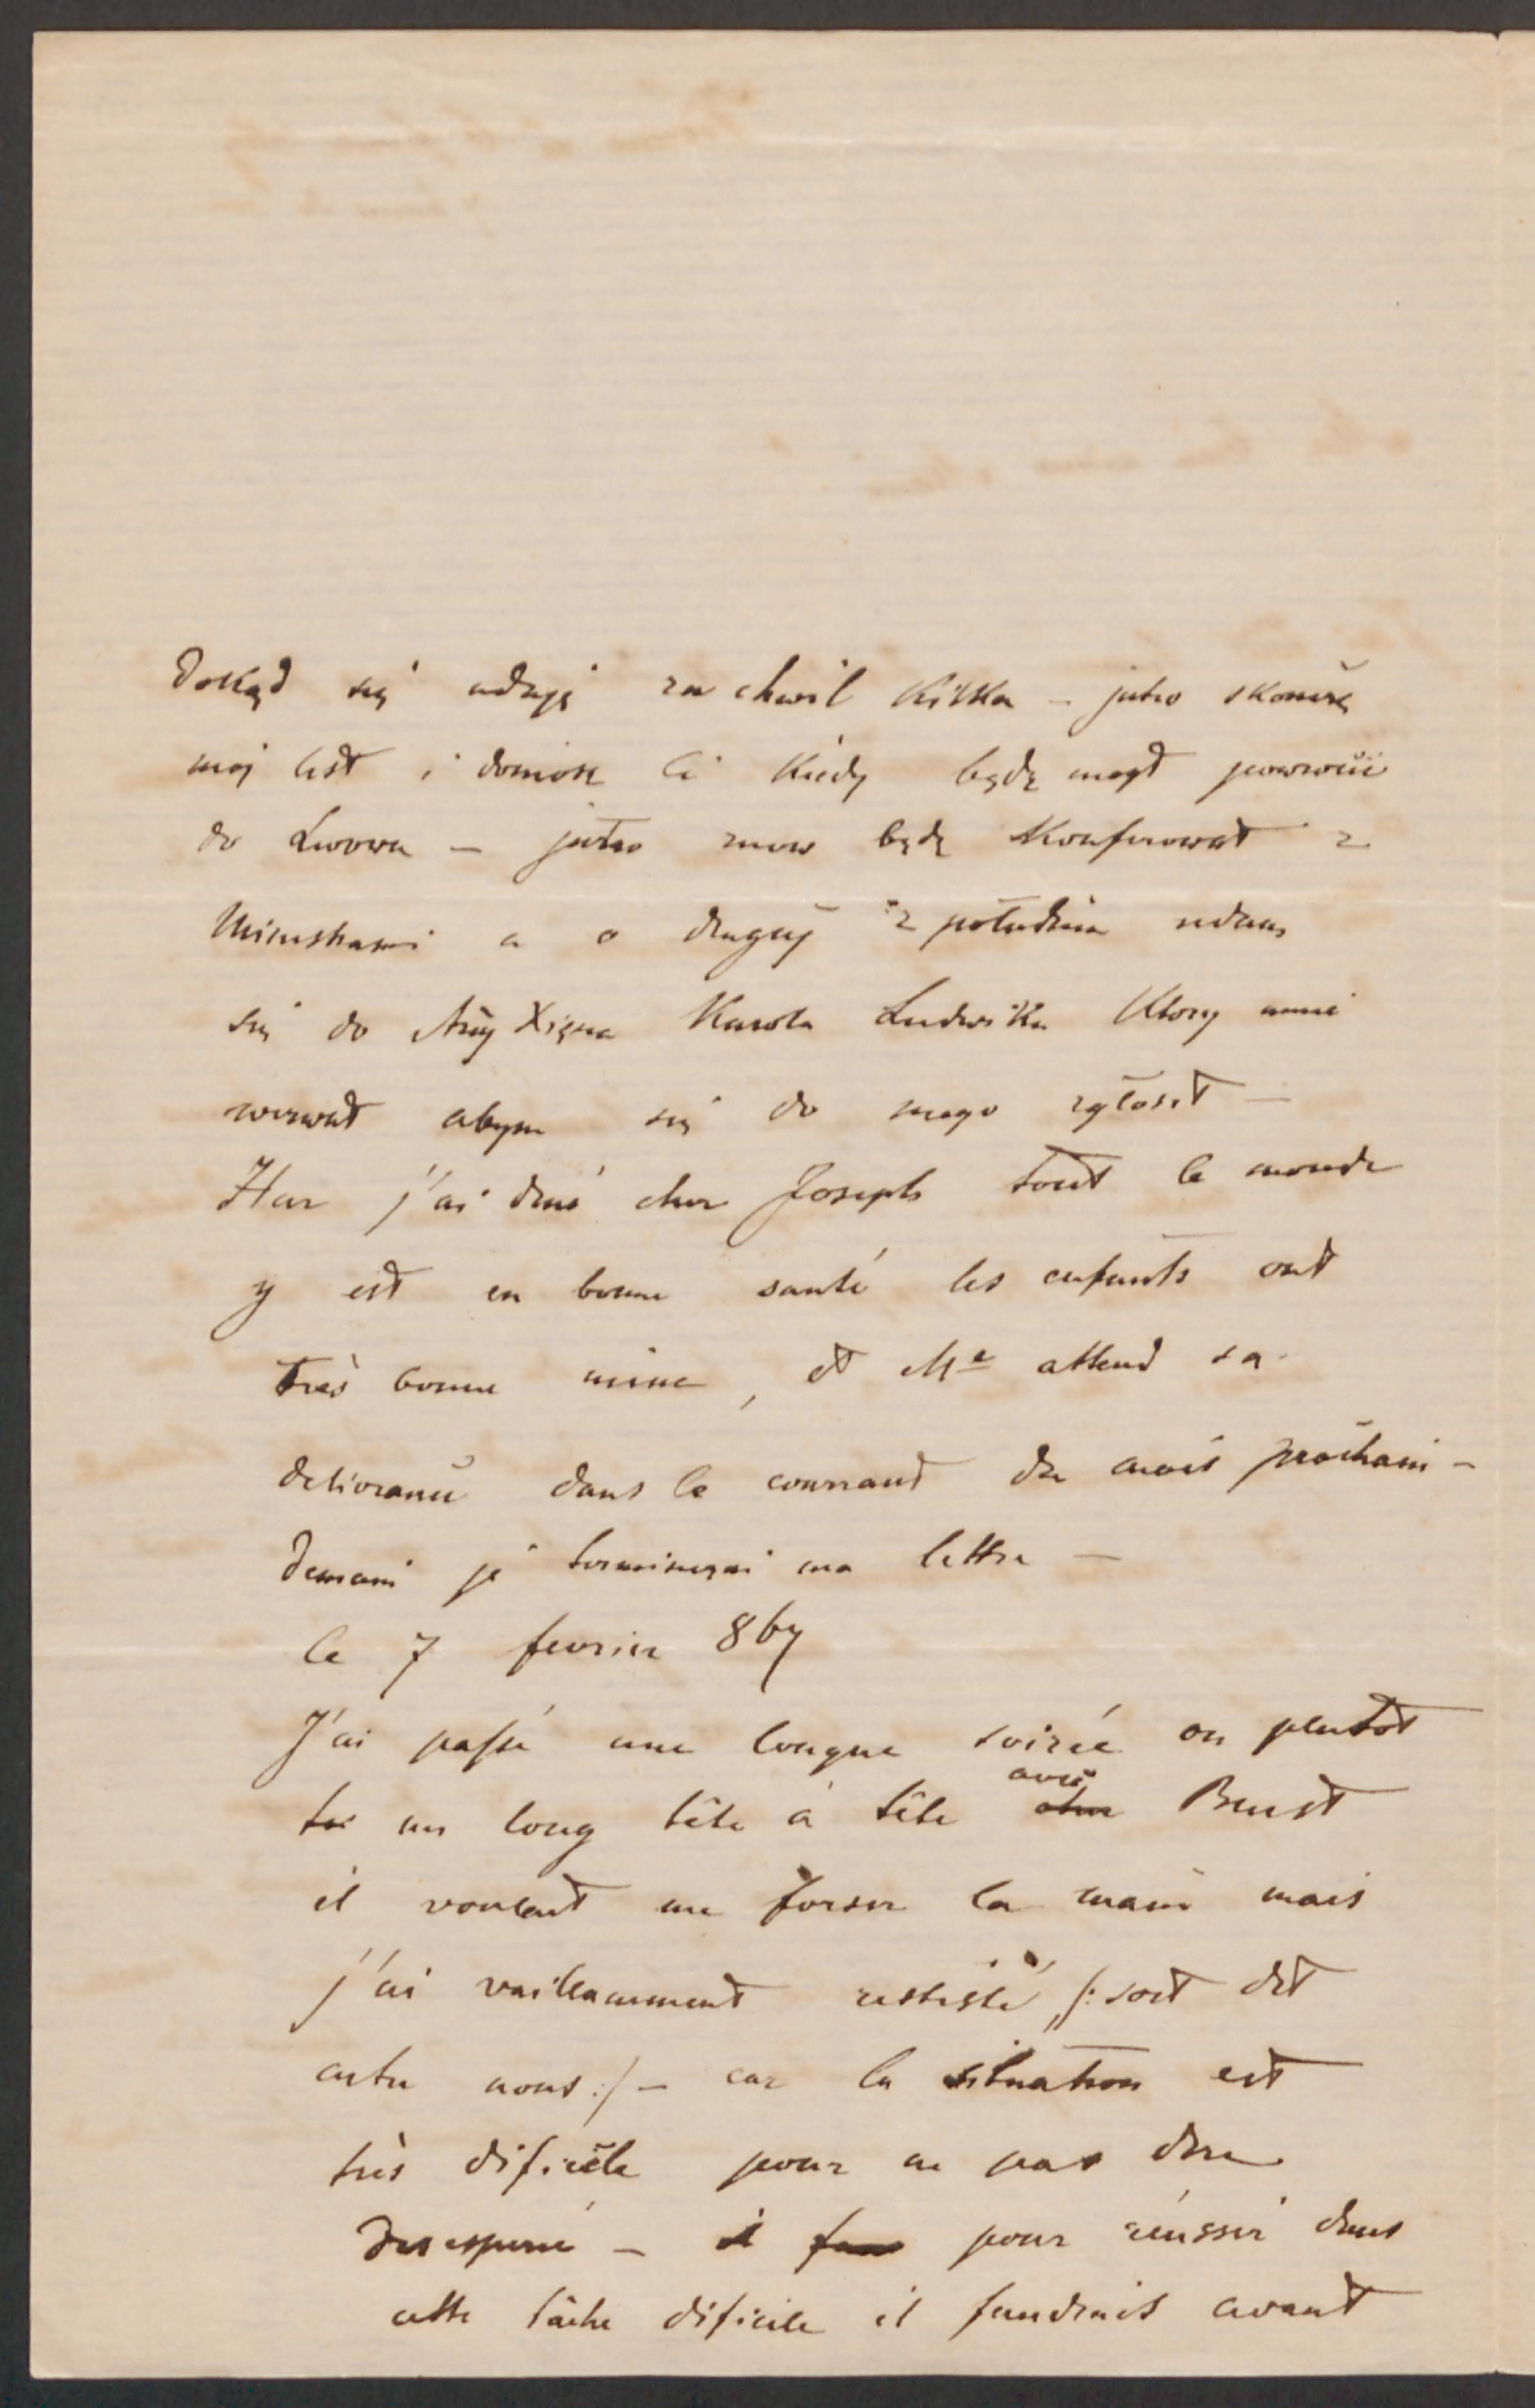 dokąd się udaję za chwil kilka – jutro skończę
moj list i doniosę Ci kiedy będę mógł powrócić
do Lwowa – jutro znow będę konferował z
Ministrami a o drugiej z południa udam
się do Arcy Xięcia Karola Ludwika ktory mnie
wezwał abym się do niego zgłosił –
Hier j'ai diné chez Joseph tout le monde
y est en bonne santé les enfants ont
très bonne mine, et Me attend sa
delivrance dans le courrant du mois prochain –
Demain je terminerai ma lettre –
le 7 fevrier 867
J'ai passé une longue soirée ou plutôt
un long tête à tête avec Beust
il voulait me forser la main mais
j'ai vaillamment resisté /: soit dit
entre nous :/ – car la situation est
très dificile pour ne pas dire
desesperé – pour réussir dans
cette tâche dificile il faudrait avant